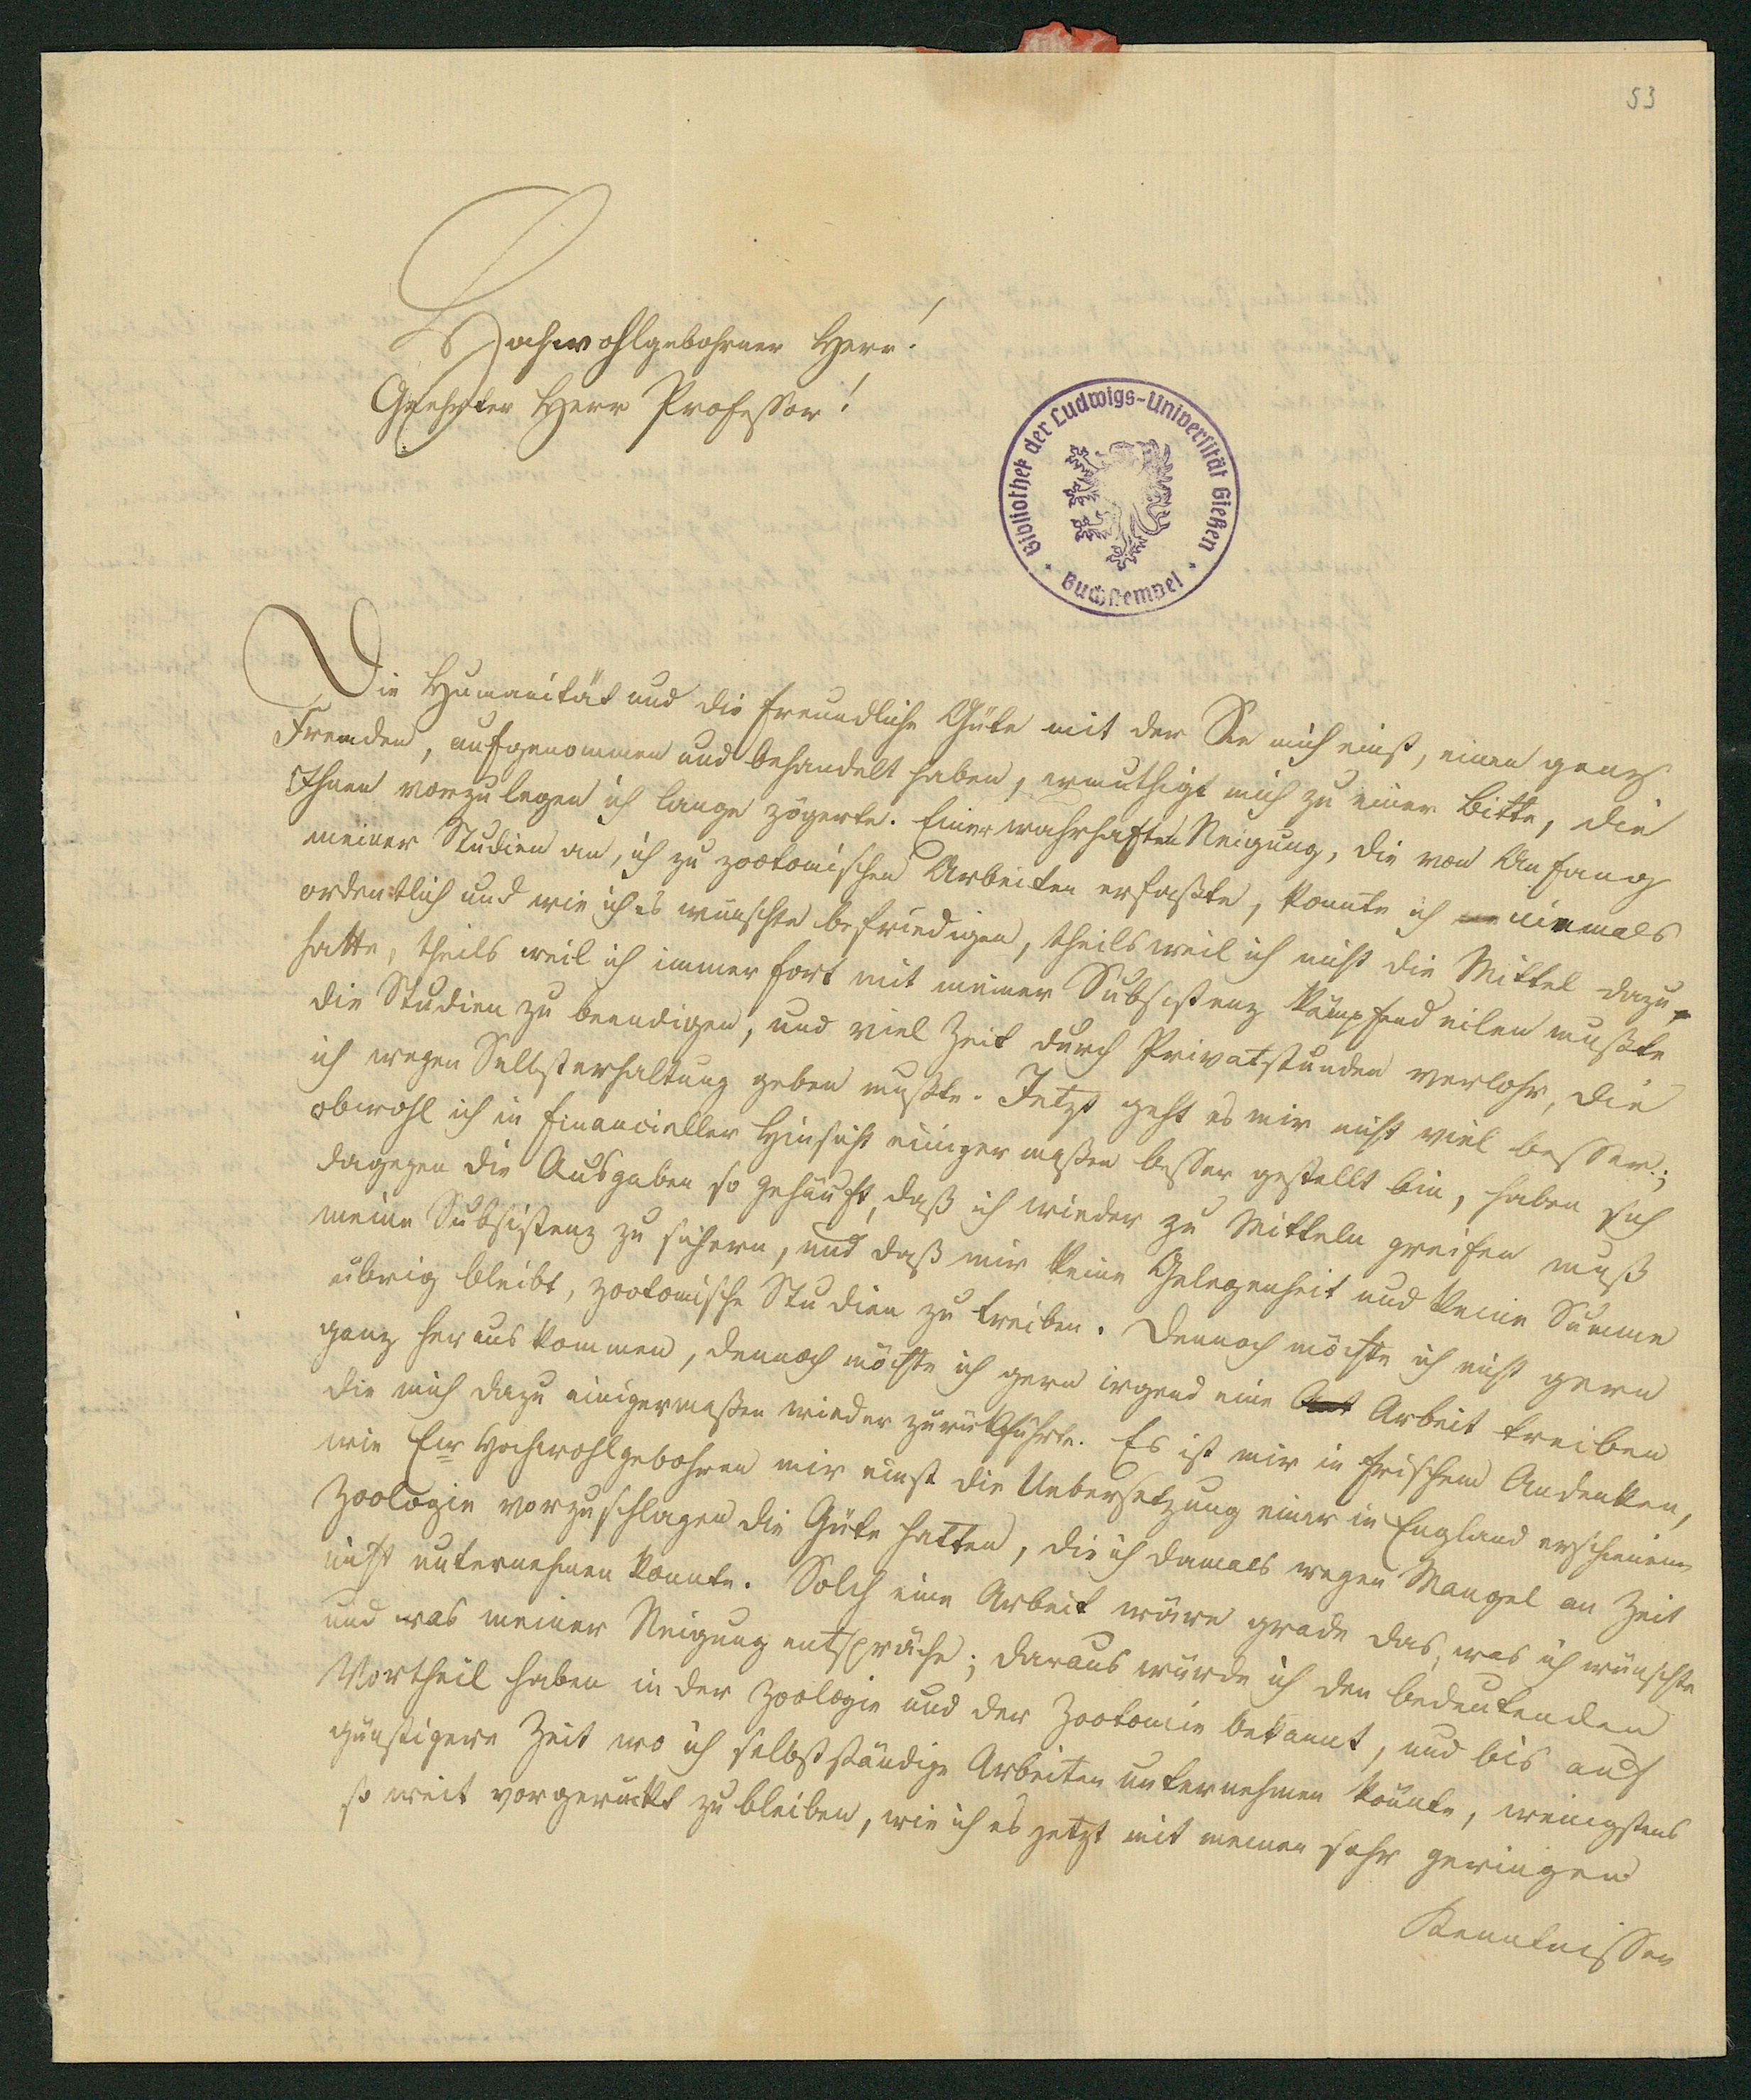 53
Hochwohlgebohrner Herr!
Geehrter Herr Professor!
Bibliothek der Ludwigs-Universität Gießen
Buchstempel
Die Humanität und die freundliche Güte mit der Sie mich einst, einen ganz
Fremden, aufgenommen und behandelt haben, ermuthigt mich zu einer Bitte, die
Ihnen vorzulegen ich lange zögerte. Einer wahrhaften Neigung, die von Anfang
meiner Studien an, ich zu zootomischen Arbeiten erfaßte, konnte ich niemals
ordentlich und wie ich es wünschte befriedigen, theils weil ich nicht die Mittel dazu
hatte, theils weil ich immerfort mit meiner Subsistenz kämpfend eilen mußte
die Studien zu beendigen, und viel Zeit durch Privatstunden verlohr, die
ich wegen Selbsterhaltung geben mußte. Jetzt geht es mir nicht viel besser;
obwohl ich in financieller Hinsicht einigermaßen besser gestellt bin, haben sich
dagegen die Ausgaben so gehäuft, daß ich wieder zu Mitteln greifen muß
meine Subsistenz zu sichern, und daß mir keine Gelegenheit und keine Summe
übrig bleibt, zootomische Studien zu treiben. Dennoch möchte ich nicht gern
ganz herauskommen, dennoch möchte ich gern irgend eine Arbeit treiben
die mich dazu einigermaßen wieder zurückführte. Es ist mir in frischem Andenken,
wie Ew Hochwohlgebohren mir einst die Uebersetzung einer in England erschienenen
Zoologie vorzuschlagen die Güte hatten, die ich damals wegen Mangel an Zeit
nicht unternehmen konnte. Solch eine Arbeit wäre grade das, was ich wünschte
und was meiner Neigung entspräche; daraus würde ich den bedeutenden
Vortheil haben in der Zoologie und der Zootomie bekannt, und bis auf
günstigere Zeit wo ich selbstständige Arbeiten unternehmen könnte, wenigstens
so weit vorgerückt zu bleiben, wie ich es jetzt mit meinen sehr geringen
Kenntnissen